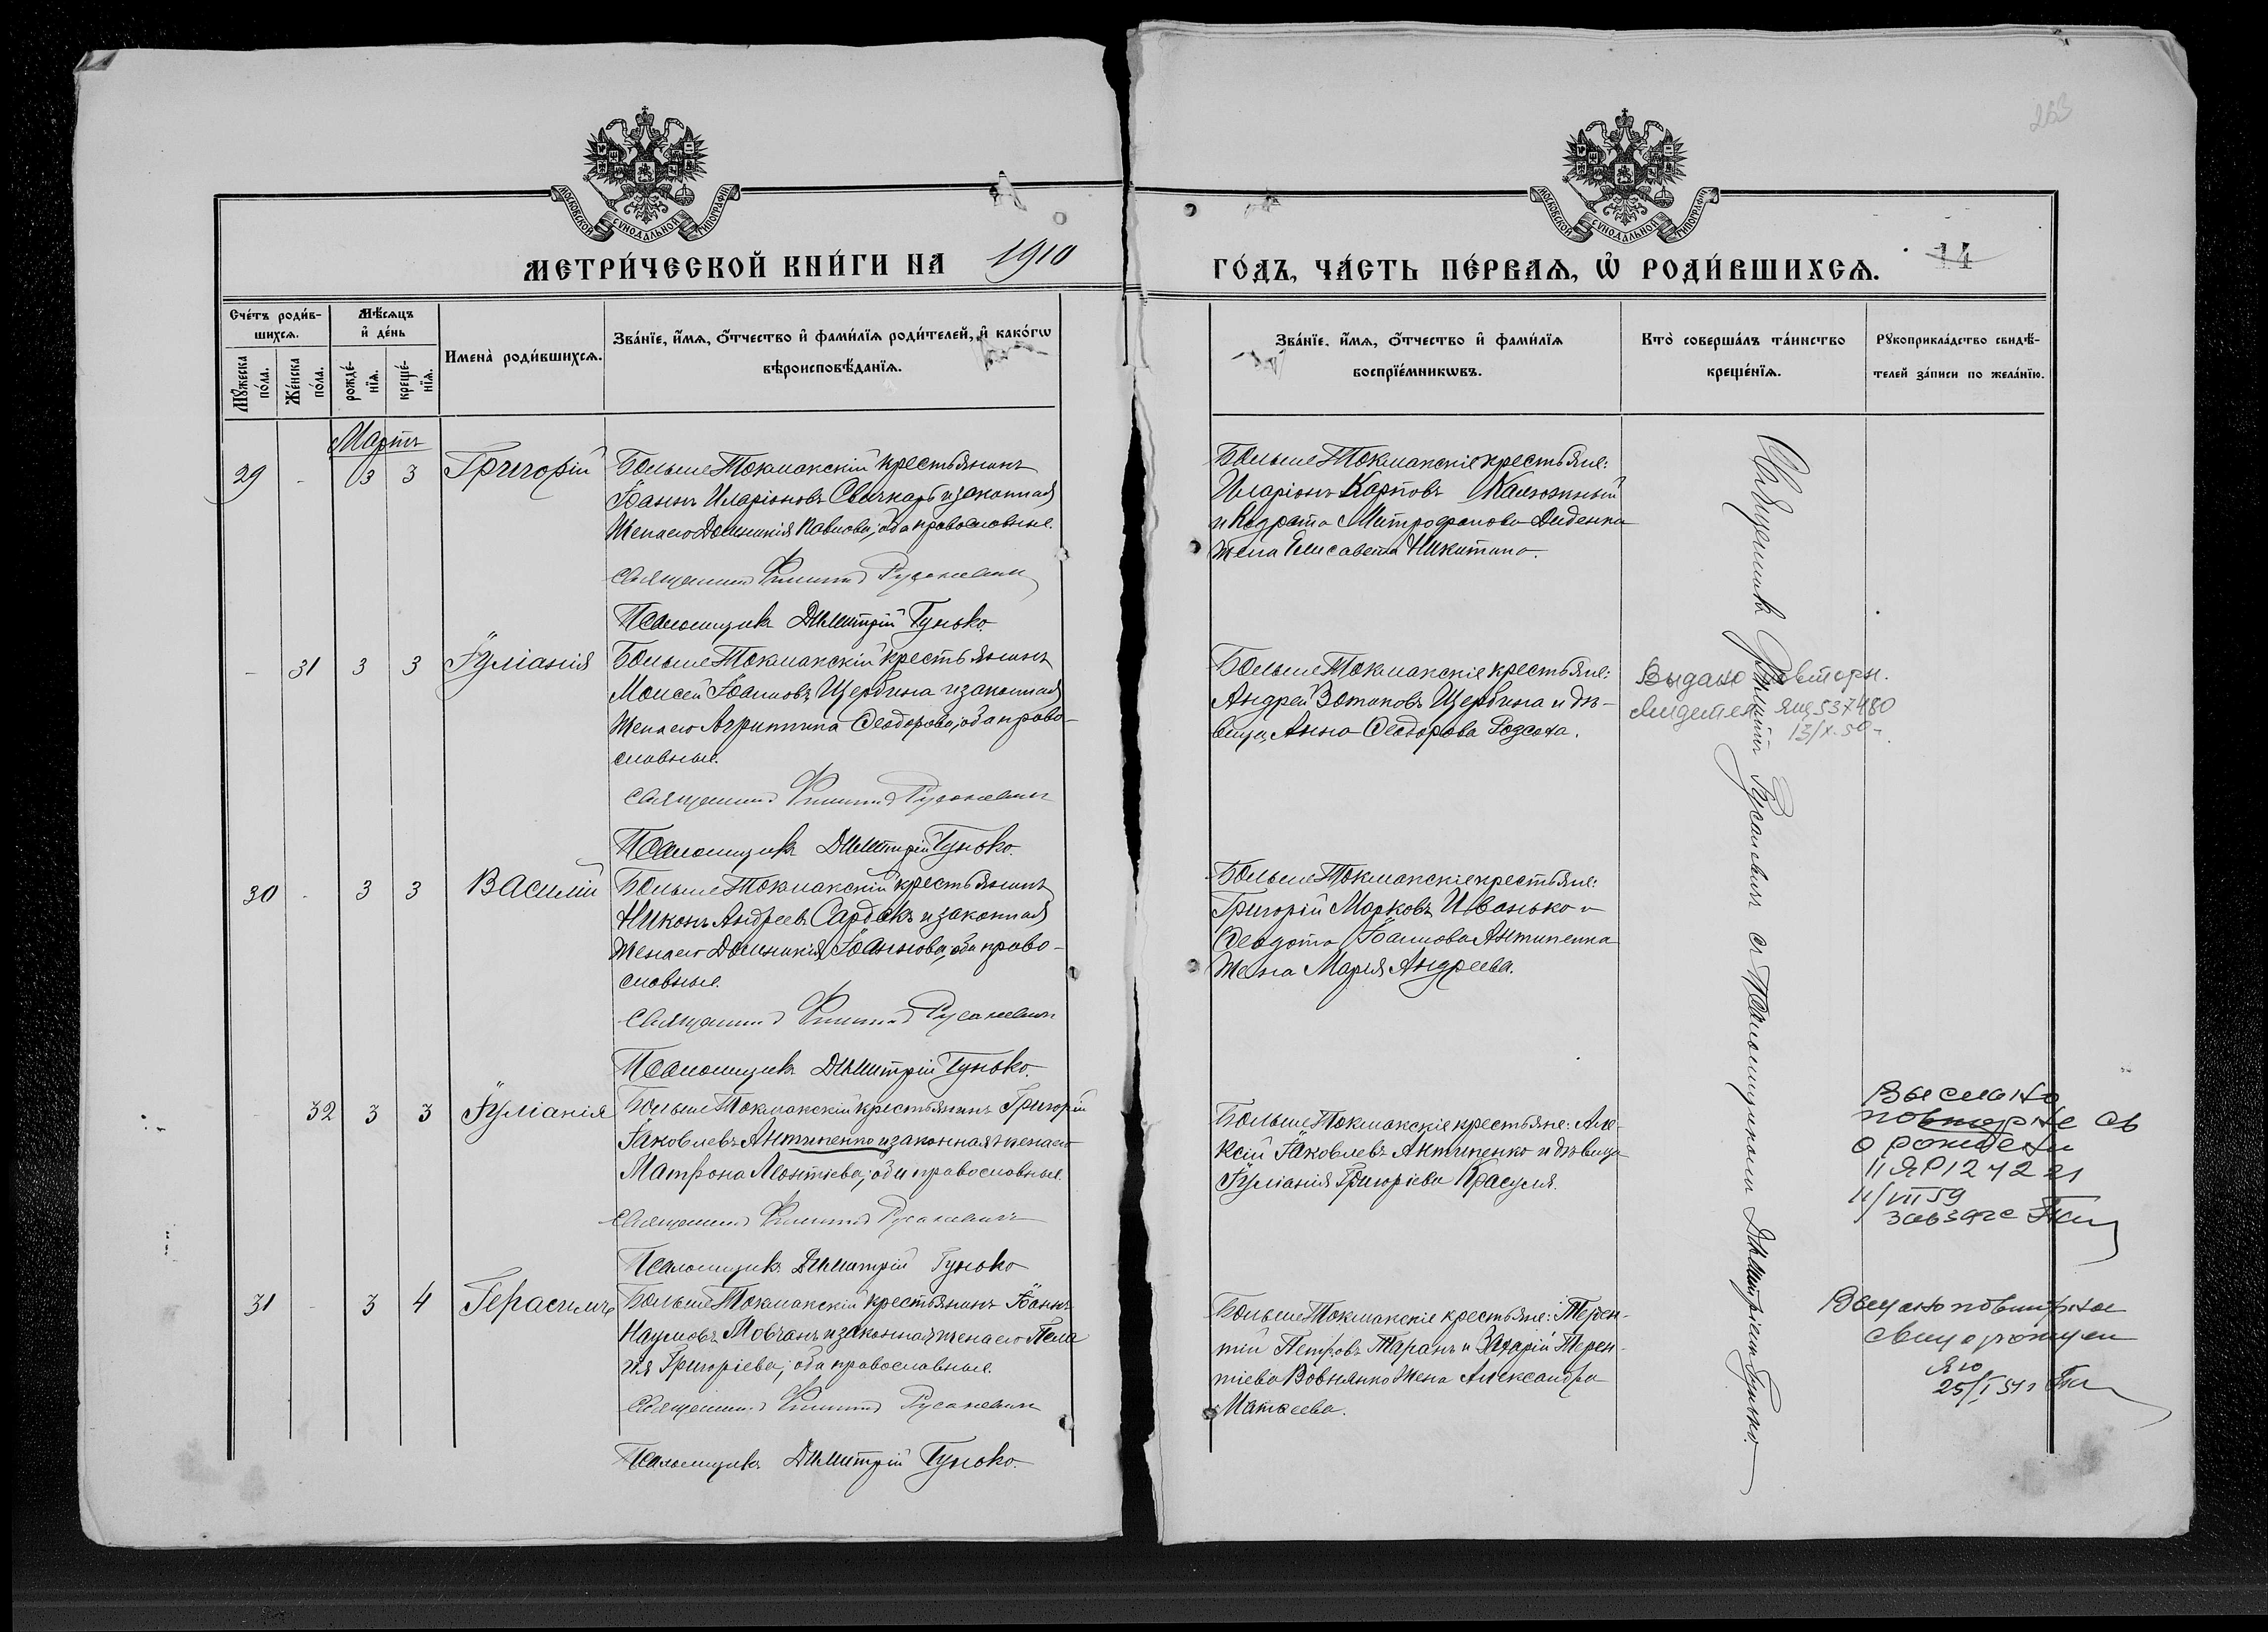 263
МОСКОВСКОЙ СѴНОДАЛЬНОЙ ТИПОГРАФІИ
МОСКОВСКОЙ СѴНОДАЛЬНОЙ ТИПОГРАФІИ
МЕТРИ́ЧЕСКОЙ КНИ́ГИ НА 1910
ГО́ДЪ, ЧА́СТЬ ПЕ́РВАѦ, Ѡ҆ РОДИ́ВШИХСѦ. 14
Сче́тъ роди́в-
шихсѧ.
Мꙋ́жеска по́ла.
Же́нска по́ла.
Мѣ́сѧцъ
и҆ де́нь
рожде́-
нїѧ.
креще́-
нїѧ.
Имена̀ роди́вшихсѧ.
Зва́нїе, и҆́мѧ, ѻ҆́тчество и҆ фами́лїѧ роди́телей, и҆ како́гѡ
вѣроисповѣ́данїѧ.
Зва́нїе, и҆́мѧ, ѻ҆́тчество и҆ фами́лїѧ
воспрїе́мникѡвъ.
Кто̀ соверша́лъ та́инство
креще́нїѧ.
Рꙋкоприкла́дство свидѣ́-
телей за́писи по жела́нїю.
Мартъ
29 - 3 3 Григорій
БольшеТокмакскій крестьянинъ
Іоаннъ Иларіоновъ Свичкарь и законная
жена его Домникія Павлова, оба православные.
Священникъ Филиппъ Русаневичъ
Псаломщикъ Димитрій Гунько.
БольшеТокмакскіе крестьяне:
Иларіонъ Карповъ Калюжный
и Кодрата Митрофанова Диденка
жена Елисавета Никитина.
- 31 3 3 Іуліанія
БольшеТокмакскій крестьянинъ
Моисей Іоанновъ Щербина и законная
жена его Агриппина Ѳеодорова, оба право-
славные.
Священникъ Филиппъ Русаневичъ
Псаломщикъ Димитрій Гунько.
БольшеТокмакскіе крестьяне:
Андрей Зотиковъ Щербина и дѣ-
вица Анна Ѳеодорова Розсоха.
Выдано повторн.
свидетел ЯЦ 537480
13/X-50-
30 - 3 3 Василій
БольшеТокмакскій крестьянинъ
Никонъ Андреевъ Сардакъ и законная
жена его Домникія Іоаннова, оба право-
славные.
Священникъ Филиппъ Русаневичъ
Псаломщикъ Димитрій Гунько.
БольшеТокмакскіе крестьяне:
Григорій Марковъ Иванько и
Ѳеодота Іоаннова Антипенка
жена Марія Андреева.
32 3 3 Іуліанія
БольшеТокмакскій крестьянинъ Григорій
Іаковлевъ Антипенко и законная жена его
Матрона Леонтіева, оба православные.
Священникъ Филиппъ Русаневичъ
Псаломщикъ Димитрій Гунько
БольшеТокмакскіе крестьяне: Але-
ксій Іаковлевъ Антипенко и дѣвица
Іуліанія Григоріева Красуля.
Выслано
повторне св
о рожден
II ЯР 124221
11/VIII 59
31 - 3 4 Герасимъ
БольшеТокмакскій крестьянинъ Іоаннъ
Наумовъ Мовчанъ и законная жена его Пела
гія Григоріева, оба православные.
Священникъ Филиппъ Русаневичъ
Псаломщикъ Димитрій Гунько.
БольшеТокмакскіе крестьяне: Терен-
тій Петровъ Таранъ и Захарій Терен-
тіева Вовнянко жена Александра
Матѳеева.
Выдано повторное
свид о рожден
25/I 51г
Священникъ Филиппъ Русаневичъ съ Псаломщикомъ Димитріемъ Гунько.